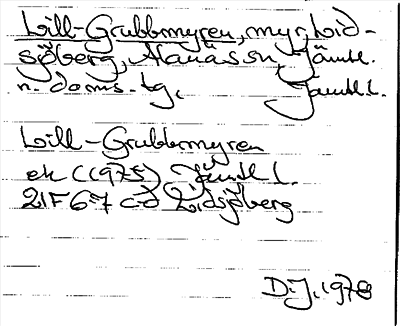 Lill-Grubbmyren, myr, Lid-
sjöberg, Alanäs sn, Jämtl.
n. doms. tg, Jämtl. l.
Lill-Grubbmyren
ek (1975) Jämtl l.
21F 6-7 c-d Lidsjöberg
D.J. 1978